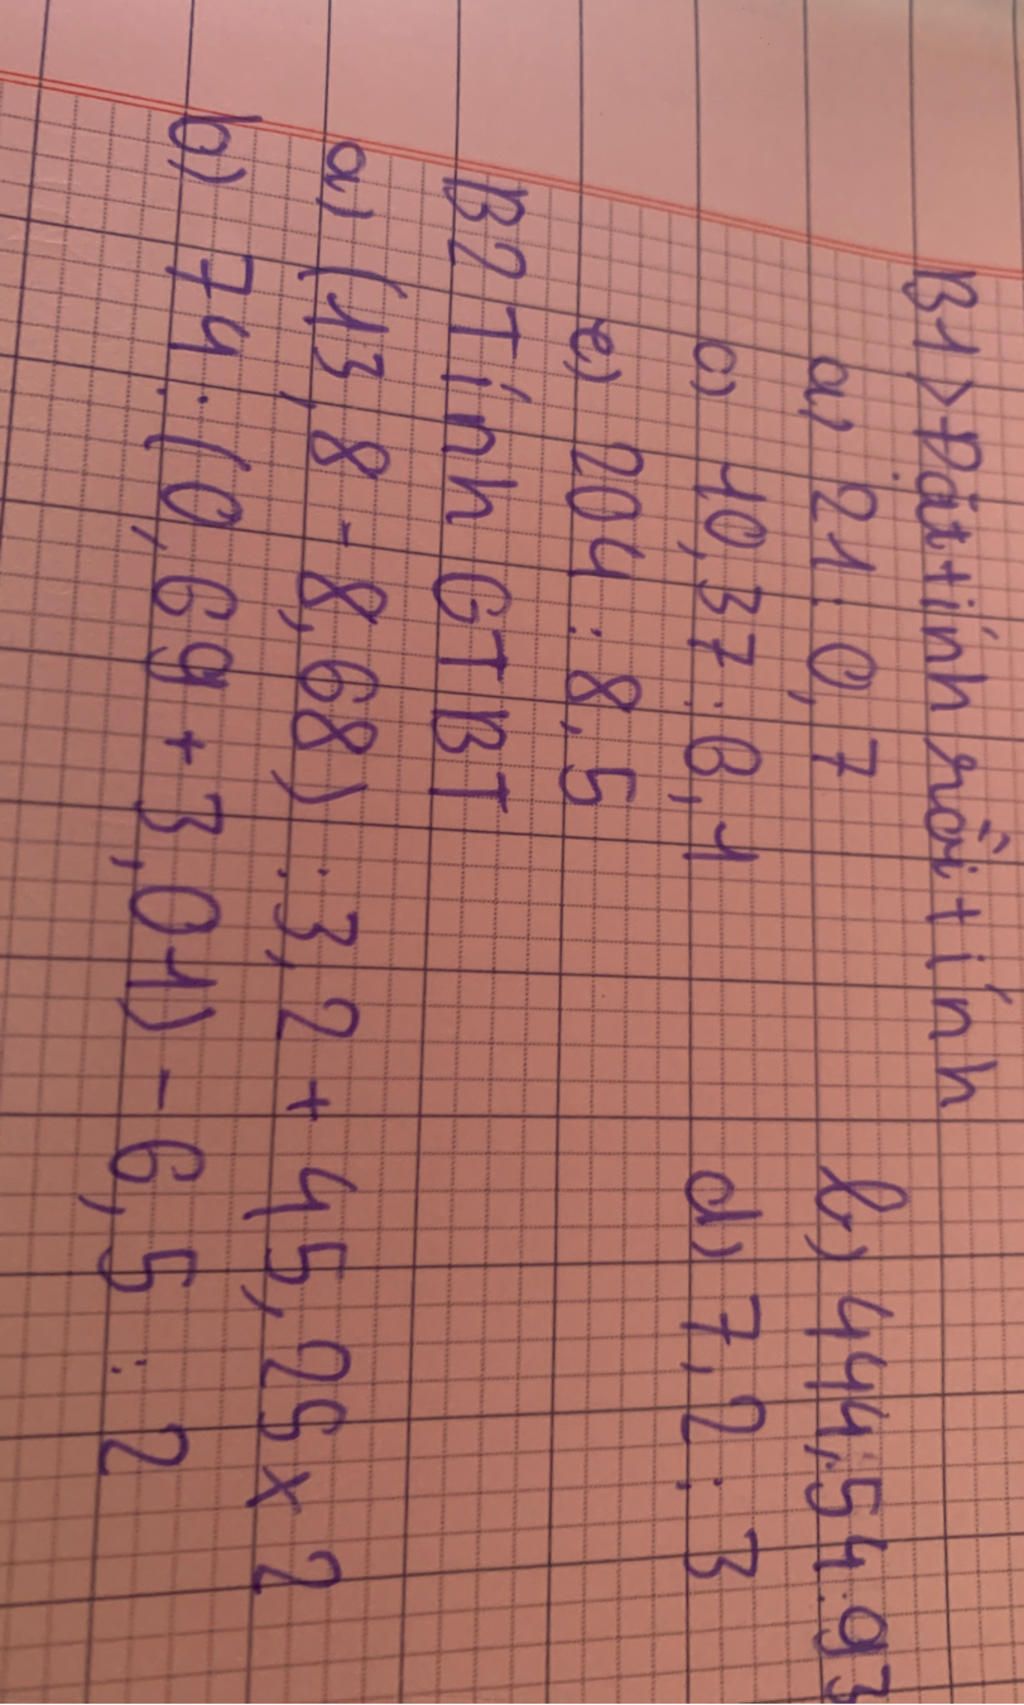 B1> Đặt tính rồi tính
a, 21 : 0,7 b,) 444,54:93
c) 10,37 : 6,1 d) 7,2 : 3
e) 204 : 8,5
B2 Tính GTBT
a) (13,8 - 8,68) : 3,2 + 45,25 x 2
b) 74 : (0,69 + 3,01) - 6,5 : 2